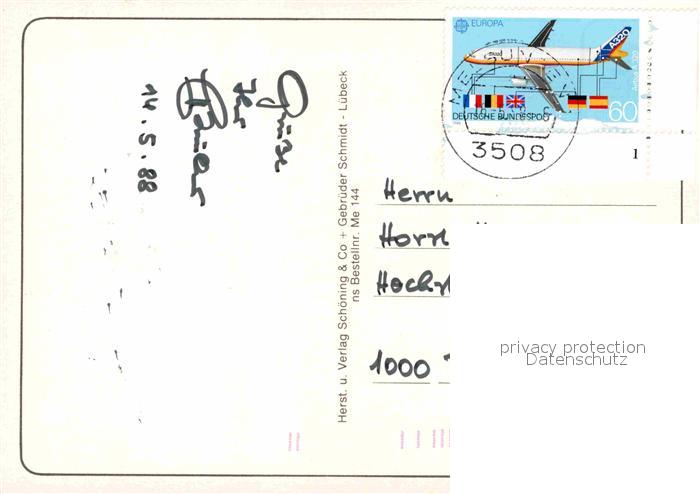 EUROPA
A320
Airbus A 320
60
DEUTSCHE BUNDESPOST
3508
1
Grüße
Ihr
14.5.88
Herst. u. Verlag Schöning & Co + Gebrüder Schmidt - Lübeck
ns Bestellnr. Me 144
Herrn
Horst
1000
privacy protection
Datenschutz